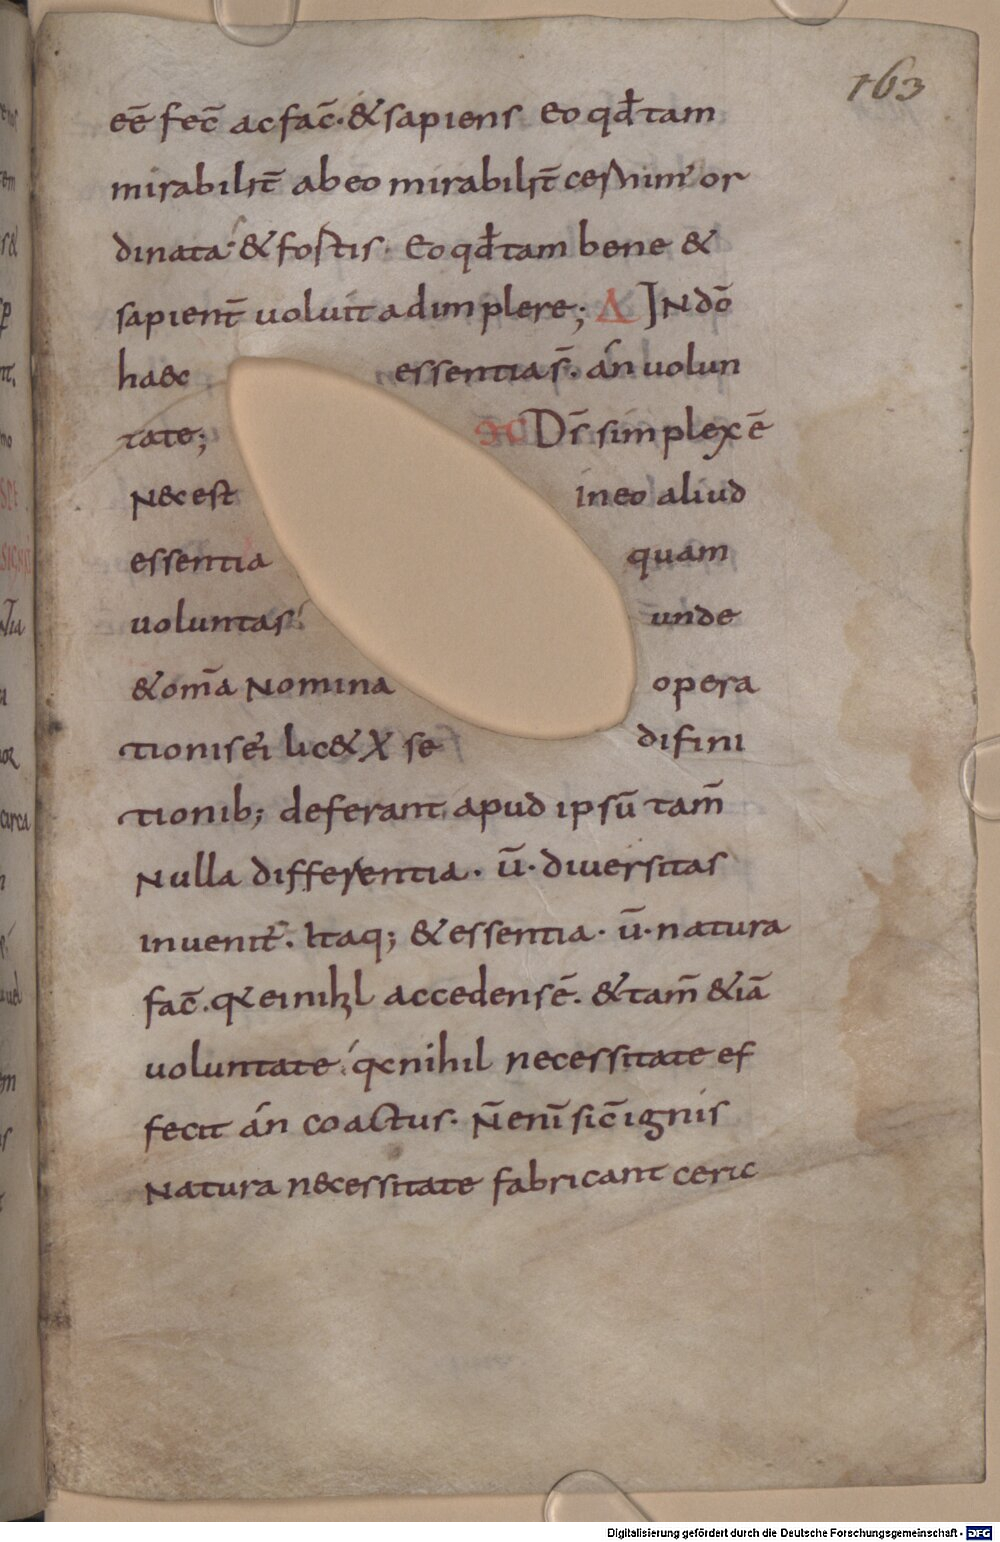 163
eē fec̄ ac fac̄. & sapiens Eo qđ tam
mirabilit̄ ab eo mirabilit̄ cernim' or
dinata. & fostis. Eo qđ tam bene &
sapient̄ uoluit adimplere; Δ IN dō
haec essentia s̄. án uolun
tate; Ds̄ simplex ē
Nec est in eo aliud
essentia quam
uoluntas unde
& om̄a Nomina opera
tionis ei lic& X se difini
tionib; deferant apud ipsū tam̄
Nulla differentia. ū. diuersitas
inuenit'. Itaq; & essentia. ū. natura
fac̄. ei nihil accedens ē. & tam̄ & iā
uoluntate nihil necessitate ef
fecit án coactus. N̄ enī sic̄ ignis
Natura necessitate fabricant
Digitalisierung gefördert durch die Deutsche Forschungsgemeinschaft - DFG